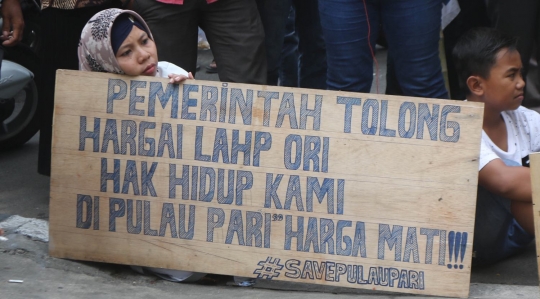 PEMERINTAH TOLONG
HARGAI LAHP ORI
HAK HIDUP KAMI
DI PULAU PARI "HARGA MATI!!!
#SAVEPULAUPARI